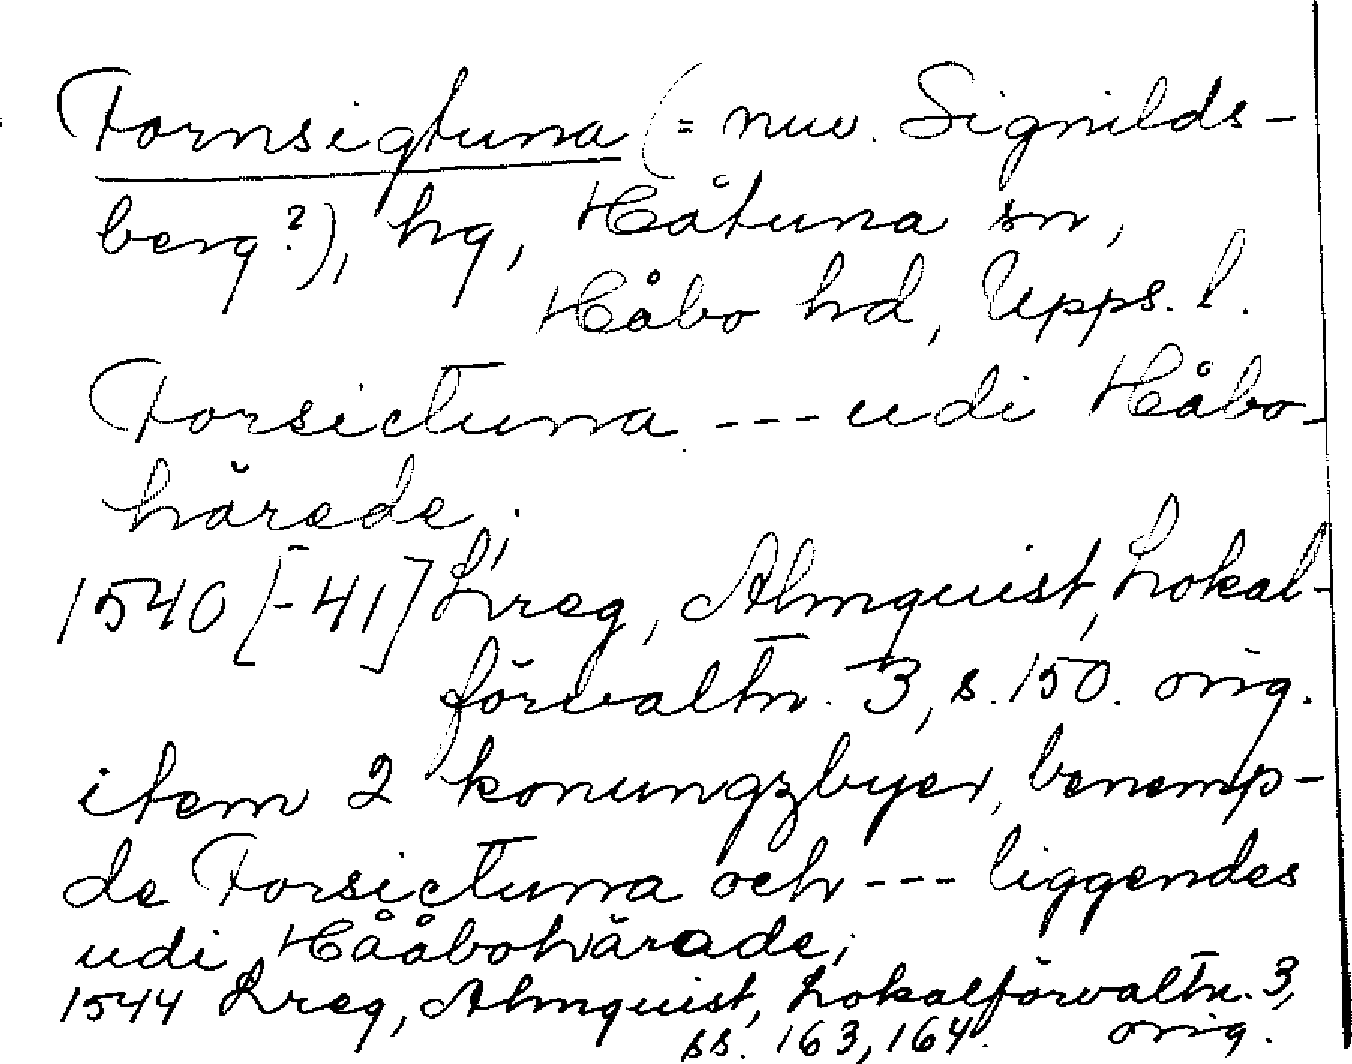 Fornsigtuna (= nuv. Signilds-
berg?), hg, Håtuna sn,
Håbo hd, Upps. l.
Forsictuna --- udi Håbo-
hårede.
1540 [-41] Lreg, Almquist, Lokal-
förvaltn. 3, s. 150. orig.
item 2 konungzbyer, benemp-
de Forsictuna och --- liggendes
udi Hååbohärade;
1544 Lreg, Almquist, Lokalförvaltn. 3,
ss. 163, 164. orig.